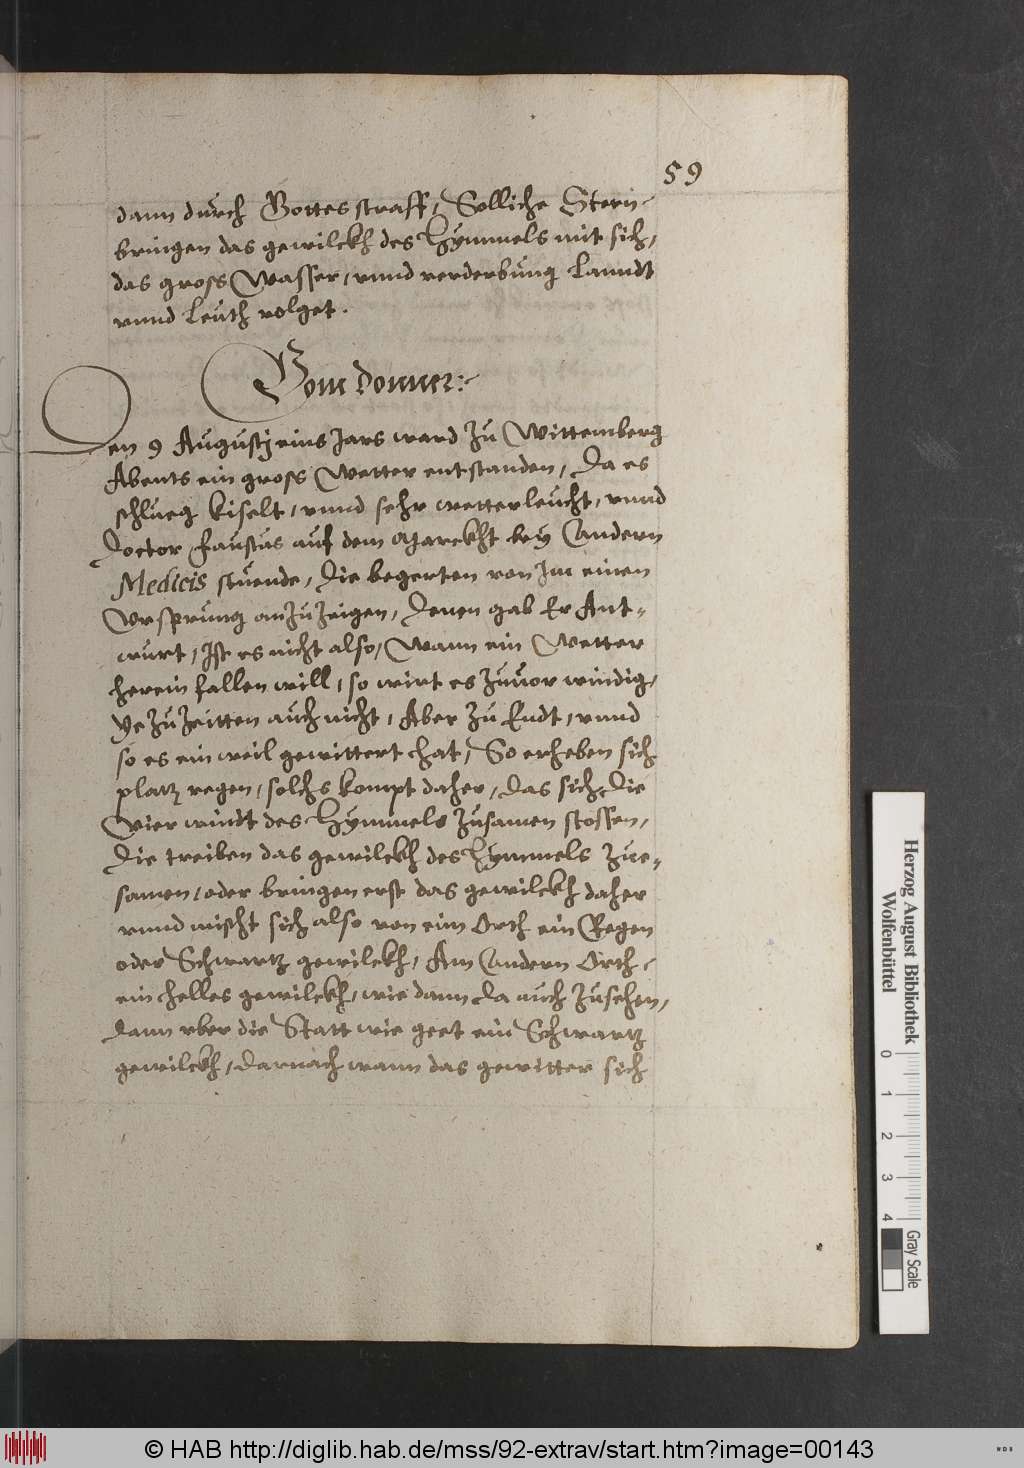 59
dann durch Gottes straff, Solliche Stern
bringen das gewilckh des Hymmels mit sich,
das gross Wasser, vnnd verderbung Lanndt
vnnd Leuth volget.
Vom donner:
Den 9 Augustj eins Jars ward zu Wittemberg
Abents ein gross Wetter entstanden, Da es
schlueg kiselt, vnnd sehr wetterleucht, vnnd
Doctor Faustus auf dem Marckht bey Andern
Medicis stuende, Die begerten von Im einen
Vrsprung anzuzeigen, Denen gab Er Ant-
wurt, Ist es nicht also, Wann ein Wetter
herein fallen will, so wirt es zuuor windig,
Ye zu zeitten auch nicht, Aber zu Endt, vnnd
so es ein weil gewittert hat, So erheben sich
platz regen, solchs kompt daher, das sich die
Vier windt des Hymmels zusamen stossen,
Die treiben das gewilckh des Hymmels zue-
samen, oder bringen erst das gewilckh daher
vnnd mischt sich also von eim Orth ein Regen
oder Schwartz gewilckh, Am Andern Orth
ein helles gewilckh, wie dann da auch zusehen,
dann vber die Statt wie geet ein Schwartz
gewilckh, Darnach wann das gewitter sich
Herzog August Bibliothek
Wolfenbüttel
0 1 2 3 4
Gray Scale
© HAB http://diglib.hab.de/mss/92-extrav/start.htm?image=00143